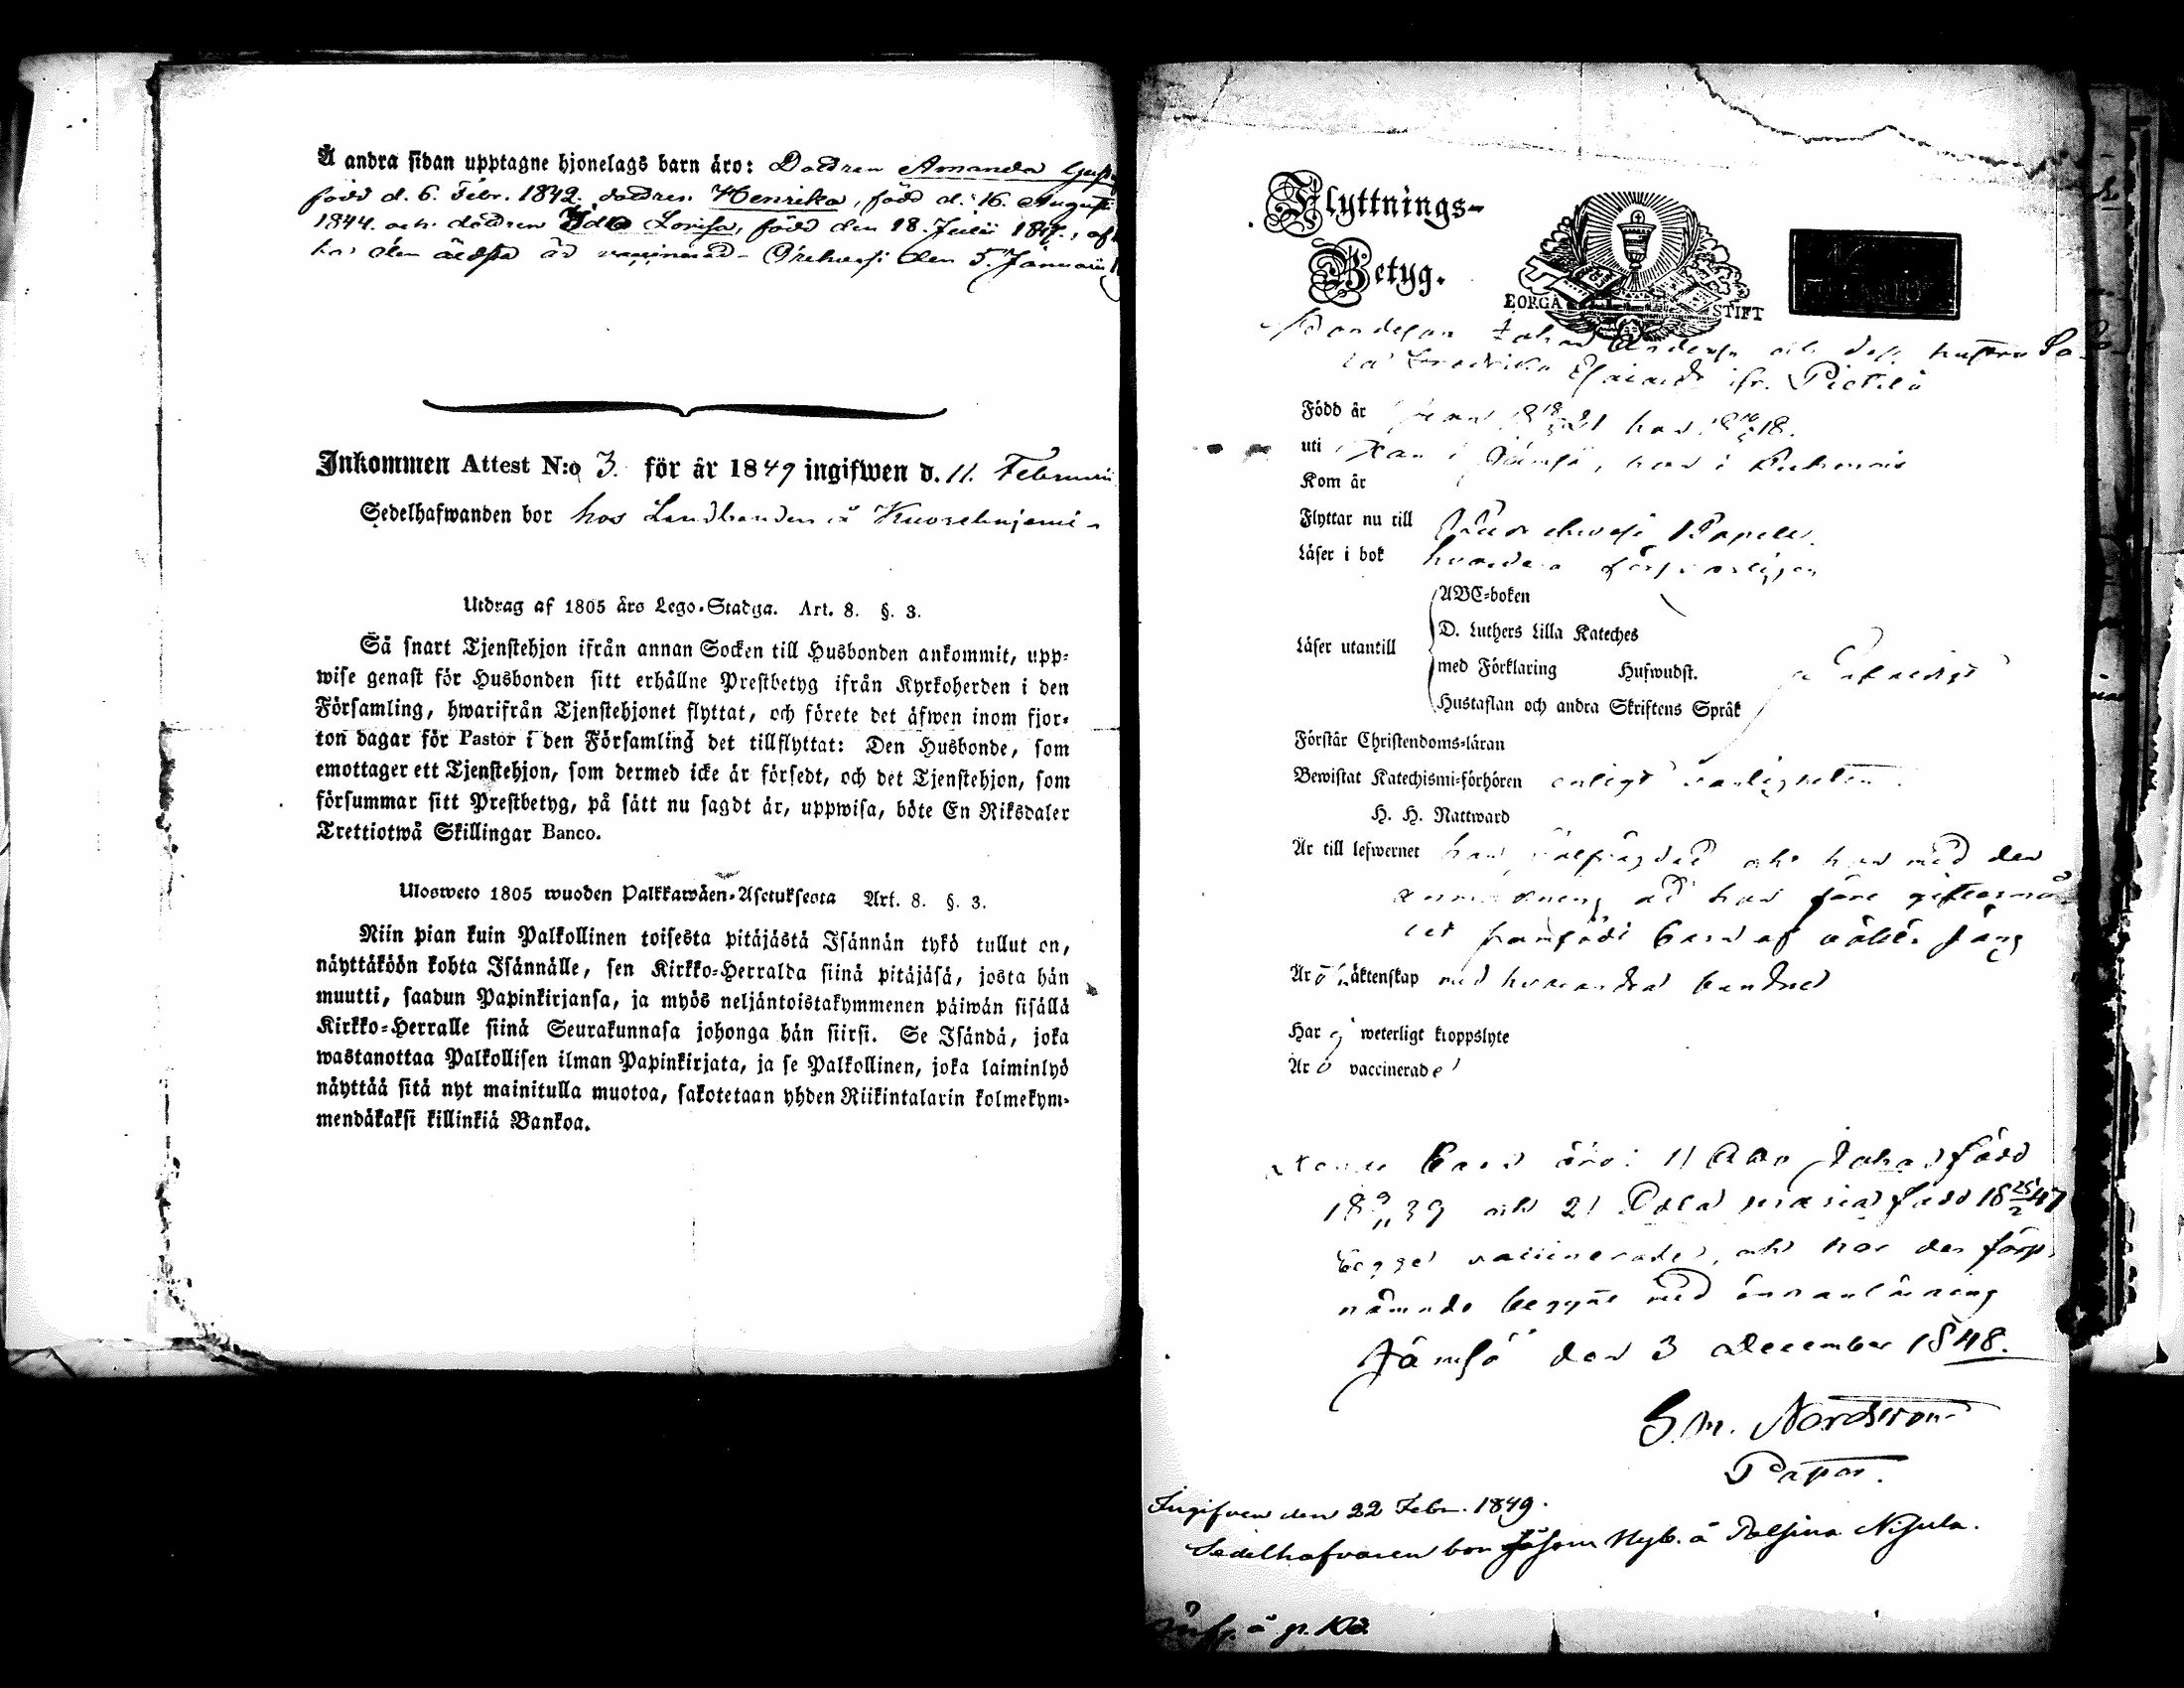 Å andra sidan upptagne hjonelags barn äro: Dottren Amanda
född d. 6. Febr. 1842. dottren Henrika, född d. 16. Augusti
1844. och dottren Ida Lovisa, född den 18. Julii 1847., af
den äldsta är vaccinerad - den 5. Januarii
Inkommen Attest N:o 3. för år 1849 ingifwen d. 11. Februarii
Sedelhafwanden bor hos Landbonden å
Utdrag af 1805 års Lego-Stadga. Art. 8. §. 3.
Så snart Tjenstehjon ifrån annan Socken till Husbonden ankommit, upp-
wise genast för Husbonden sitt erhållne Prestbetyg ifrån Kyrkoherden i den
Församling, hwarifrån Tjenstehjonet flyttat, och förete det äfwen inom fjor-
ton dagar för Pastor i den Församling det tillflyttat: Den Husbonde, som
emottager ett Tjenstehjon, som dermed icke är försedt, och det Tjenstehjon, som
försummar sitt Prestbetyg, på sätt nu sagdt är, uppwisa, böte En Riksdaler
Trettiotwå Skillingar Banco.
Ulosweto 1805 wuoden Palkkawäen-Asetuksesta Art. 8. §. 3.
Niin pian kuin Palkollinen toisesta pitäjästä Isännän tykö tullut on,
näyttäköön kohta Isännälle, sen Kirkko-Herralda siinä pitäjäsä, josta hän
muutti, saadun Papinkirjansa, ja myös neljäntoistakymmenen päiwän sisällä
Kirkko-Herralle siinä Seurakunnasa johonga hän siirsi. Se Isändä, joka
wastanottaa Palkollisen ilman Papinkirjata, ja se Palkollinen, joka laiminlyö
näyttää sitä nyt mainitulla muotoa, sakotetaan yhden Riikintalarin kolmekym-
mendäkaksi killinkiä Bankoa.
Flyttnings-
Betyg.
BORGÅ STIFT
Bondeson Johan Andersson och dess hustru
Fredrika
Född år han 18 18/3 21 hon 18 18.
uti han i Jämsä, hon i
Kom år
Flyttar nu till Kapell.
Läser i bok hvardera försvarligen
ABC-boken
D. Luthers Lilla Kateches
Läser utantill
med Förklaring Hufwudst.
Hustaflan och andra Skriftens Språk
Förstår Christendoms-läran
Bewistat Katechismi-förhören enligt vanligheten.
H. H. Nattward
Är till lefwernet han välfrägdad och hon med den
anmärkning att hon före giftermå-
let framfödt barn af oäkta säng
Äro i äktenskap med hvarandra
Har ej weterligt kroppslyte
Äro vaccinerade
barn äro: 1) Johan född
18 9/11 39 och 2) Maria född 18 25/2 47
begge vaccinerade, och har den först
nämnde begynt med innanläsning
Jämsä den 3 December 1848.
G. M. Nordström
Pastor.
Ingifven den 22 Febr. 1849.
Sedelhafvaren bor Nyb. å Nisula.